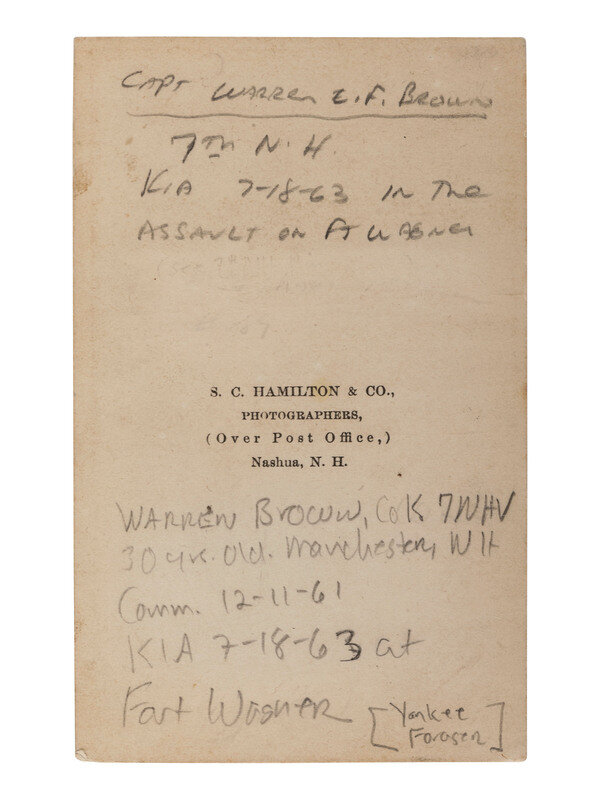 CAPT WARREN E.F. BROWN
7TH N.H.
KIA 7-18-63 IN THE
ASSAULT ON FT WAGNER
S. C. HAMILTON & CO.,
PHOTOGRAPHERS,
(Over Post Office,)
Nashua, N. H.
WARREN BROWN, Co K 7NHV
30 yrs. old. Manchester, NH
Comm. 12-11-61
KIA 7-18-63 at
Fort Wagner
[Yankee
Forager]